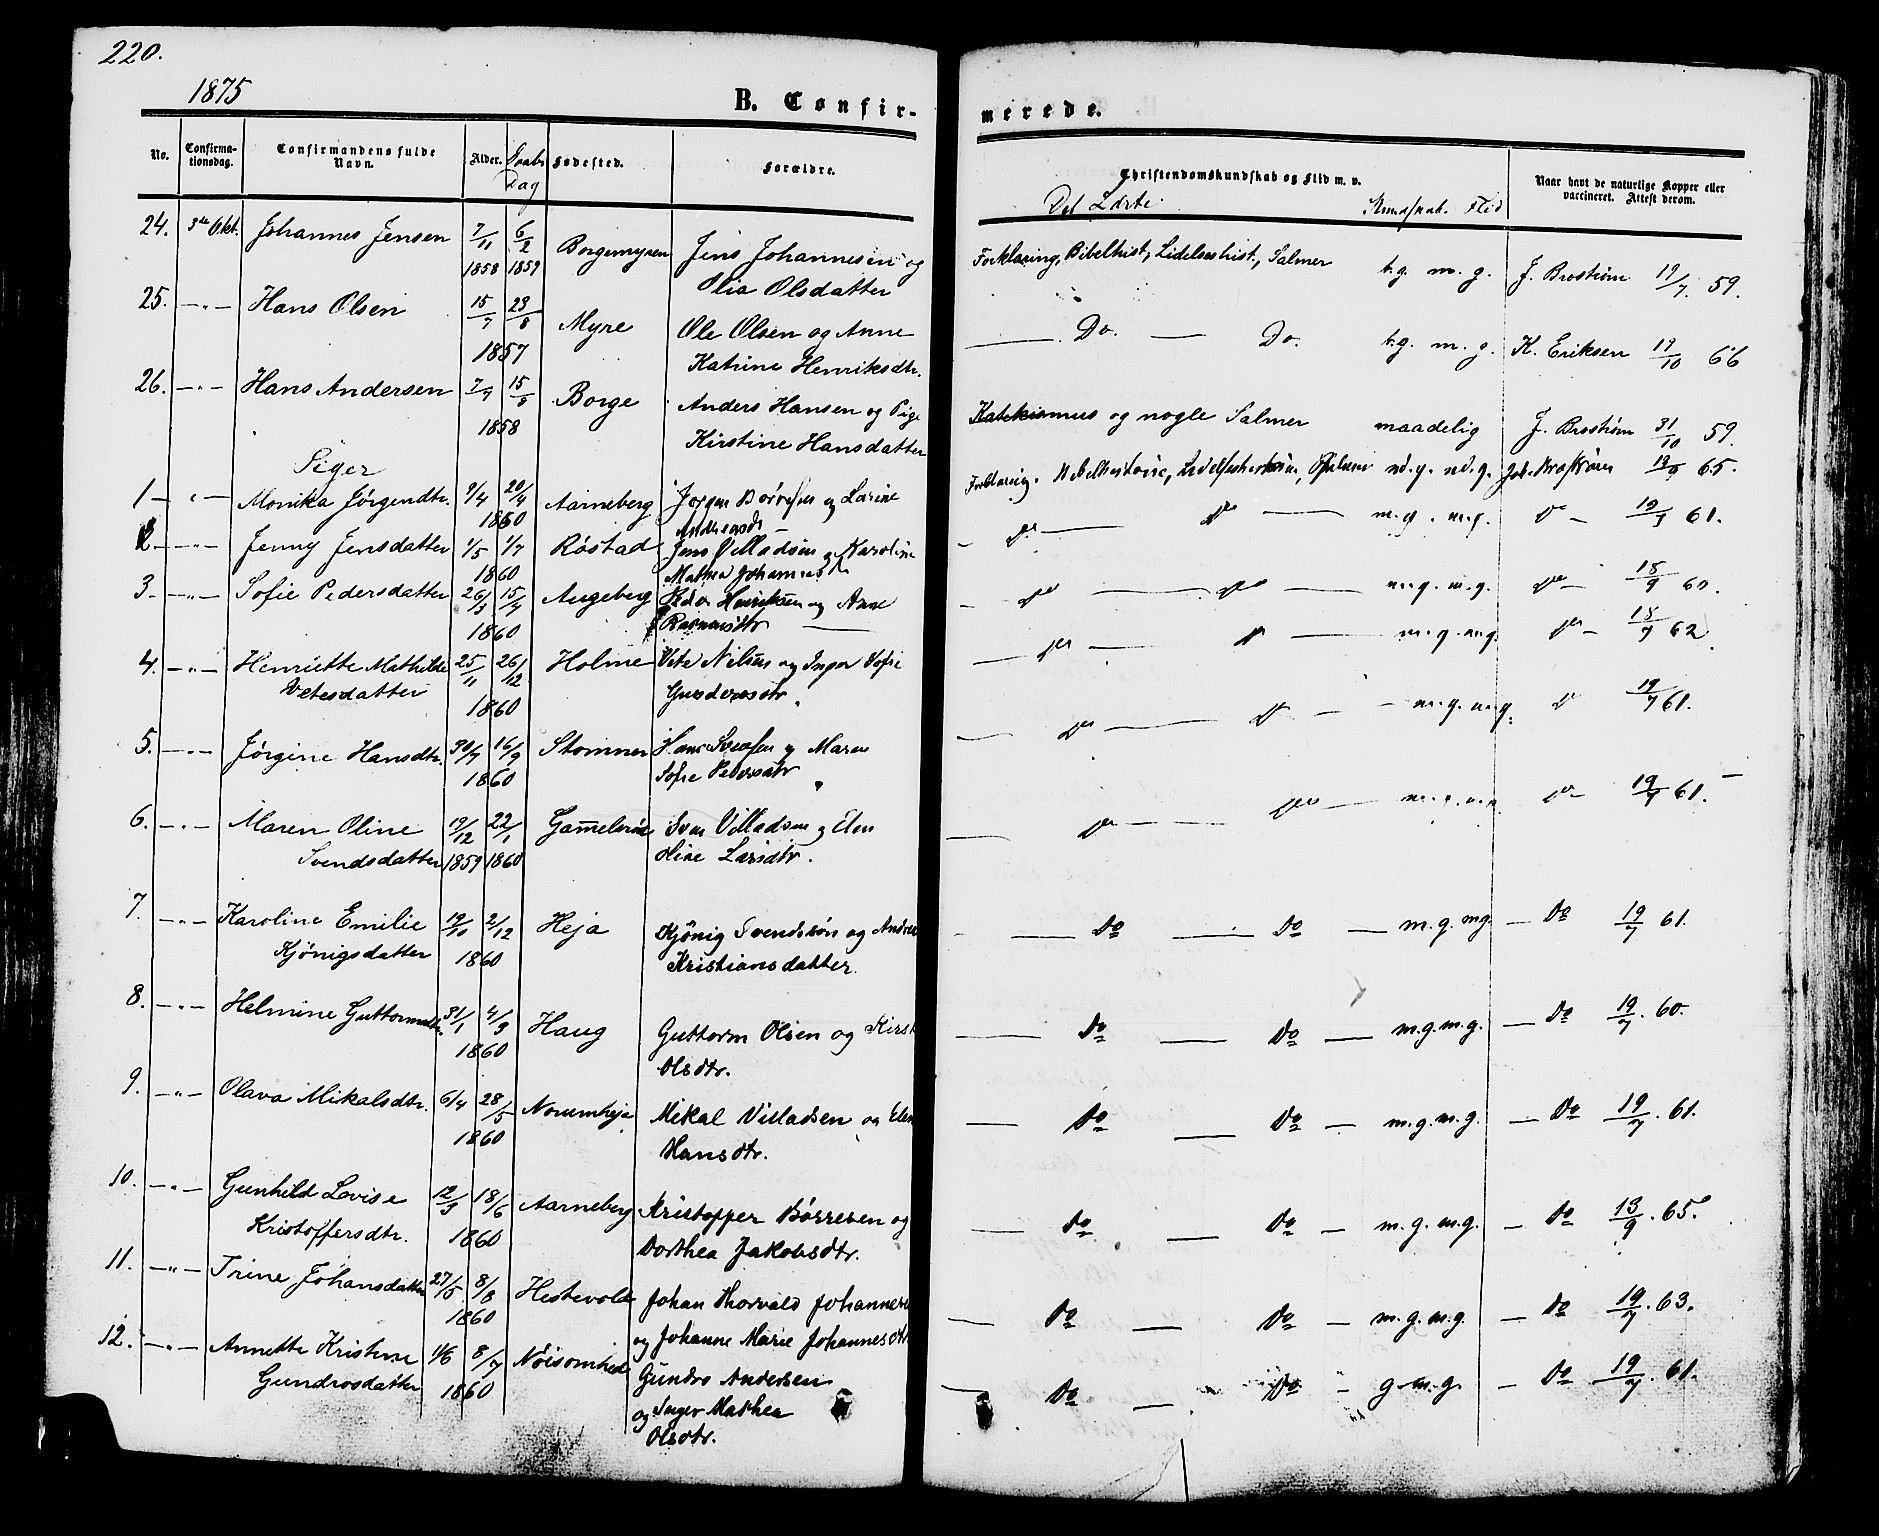 220.
1875
B. Confir-
merede.
No. Confirma-tionsdag. Confirmandens fulde Navn. Alder. Daabs Dag Fødested. Forældre.
Christendomskundskab og Flid m. v. Naar havt de naturlige Kopper eller vaccineret. Attest derom.
Det Lærte. Kundskab. Flid
24. 3die Okt. Johannes Jensen 7/11 1858 6/2 1859 Borgemyren Jens Johannesen og
Olia Olsdatter
Forklaring, Bibelhist., Lidelseshist., Salmer t.g. m. g. J. Brostrøm 19/7 59.
25. — " — Hans Olsen 15/7 23/8 1857 Myre Ole Olsen og Anne
Katrine Henriksdtr.
— Do. — Do. t.g. m. g. K. Eriksen 17/10 66
26. — " — Hans Andersen 7/7 15/8 1858 Borge Anders Hansen og Pige
Kirstine Hansdatter
Katekismus og nogle Salmer maadelig J. Brostrøm 31/10 59.
Piger
1 — " — Monika Jørgendtr. 9/4 20/4 1860 Aarneberg Jørgen Børresen og Larine
Andreasdtr
Forklaring, Bibelhistorie, Lidelseshistorie, Psalmer m.g. m.g. Joh. Brostrøm 65.
2 — " — Jenny Jensdatter 1/5 1/7 1860 Røstad Jens Villadsen og Karoline
Mathea Johannesdtr
— do — do — m.g. m.g. do — 19/7 61.
3 — " — Sofie Pedersdatter 26/3 15/4 1860 Augeberg Peder Henriksen og Anne
Rasmusdtr
— do — do — m.g. m.g. do — 60.
4. — " — Henriette Mathilde 25/11 26/12 Holme Vete Nilsen og Inger Sofie
Vetesdatter 1860 Gundersdtr
— do — do — m.g. m.g. do — 62.
5. — " — Jørgine Hansdtr. 30/7 16/9 1860 Stomner Hans Svensen og Maren
Sofie Pedersdtr
— do — do — m.g. m.g. do 19/7 61.
6. — " — Maren Oline 19/12 22/1 Sven Villadsen og Elen
Svendsdatter 1859 1860 Larsdtr.
— do — do — do — 19/7 61.
7. — " — Karoline Emilie 19/10 2/12 Heja Kjønig Svendsøn og Andrea
Kjønigsdatter 1860 Kristiansdatter.
— Do — Do — m.g. mg. — Do 19/7 61.
8. — " — Helmine Guttormsdtr. 31/1 4/3 1860 Haug Guttorm Olsen og Kirst
Olsdtr.
— Do — Do — m.g. m.g. — Do 19/7. 60.
9. — " — Olava Mikalsdtr. 6/4 28/5 1860 Norumheja Mikal Villadsen og Elen
Hansdtr.
— Do — Do — m.g. m.g. — Do 19/7. 61.
10. — " — Gunhild Lovise 12/3 18/6 Aarneberg Kristoffer Børresen og
Kristoffersdtr. 1860 Dorthea Jakobsdtr.
— Do — Do — m.g. m.g. — Do 13/9. 65.
11. — " — Trine Johansdatter 27/5 8/8 1860 Hestevold Johan Thorvald Johannesen
og Johanne Marie Johannesdtr
— Do — Do — m.g. m.g. — Do 19/7. 63.
12. — " — Annette Kristine 1/6 8/7 Nøisomhed Gundro Andersen
Gundrosdatter 1860 og Inger Mathea
Olsdtr.
— Do — Do — g. m.g. — Do 19/7. 61.